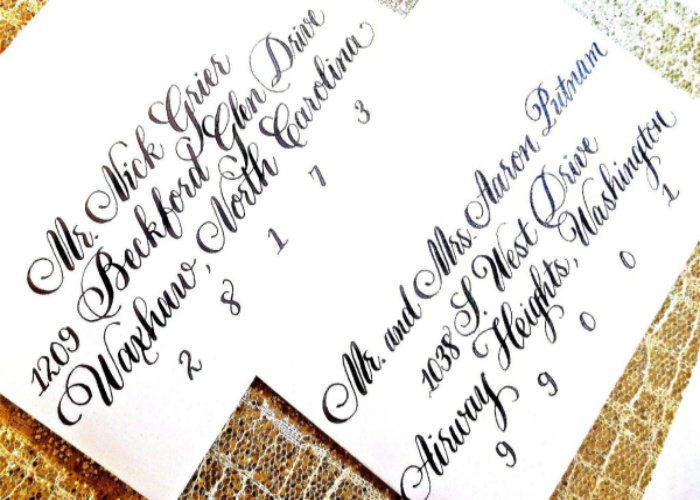 Mr. Nick Grier
1209 Beckford Glen Drive
Waxhaw, North Carolina
2 8 1 7 3
Mr. and Mrs. Aaron Putnam
1038 S. West Drive
Airway Heights, Washington
9 9 0 0 1